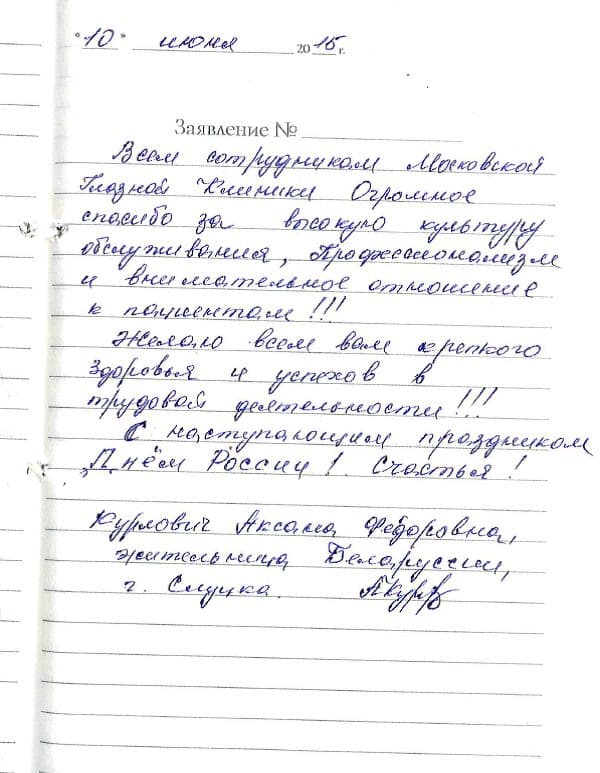 "10" июня 2015 г.
Заявление №
Всем сотрудникам Московской
Глазной Клиники Огромное
спасибо за высокую культуру
обслуживания, Профессионализм
и внимательное отношение
к пациентам!!!
Желаю всем вам крепкого
здоровья и успехов в
трудовой деятельности!!!
С наступающим праздником
"Днём России! Счастья!
Курлович Аксана Федоровна,
жительница Беларуссии,
г. Слуцка.